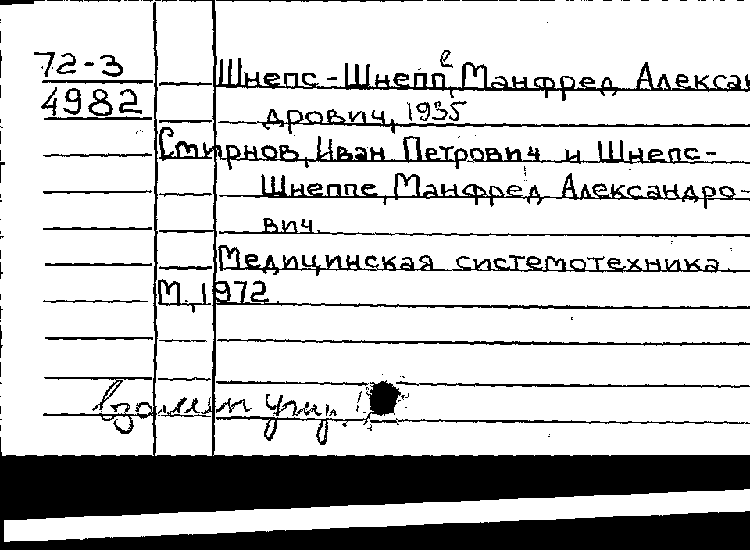 72-3
4982
Шнепс-Шнеппе, Манфред Алексан
дрович, 1935
Смирнов, Иван Петрович и Шнепс-
Шнеппе, Манфред Александро-
вич.
Медицинская системотехника
М., 1972
взамен